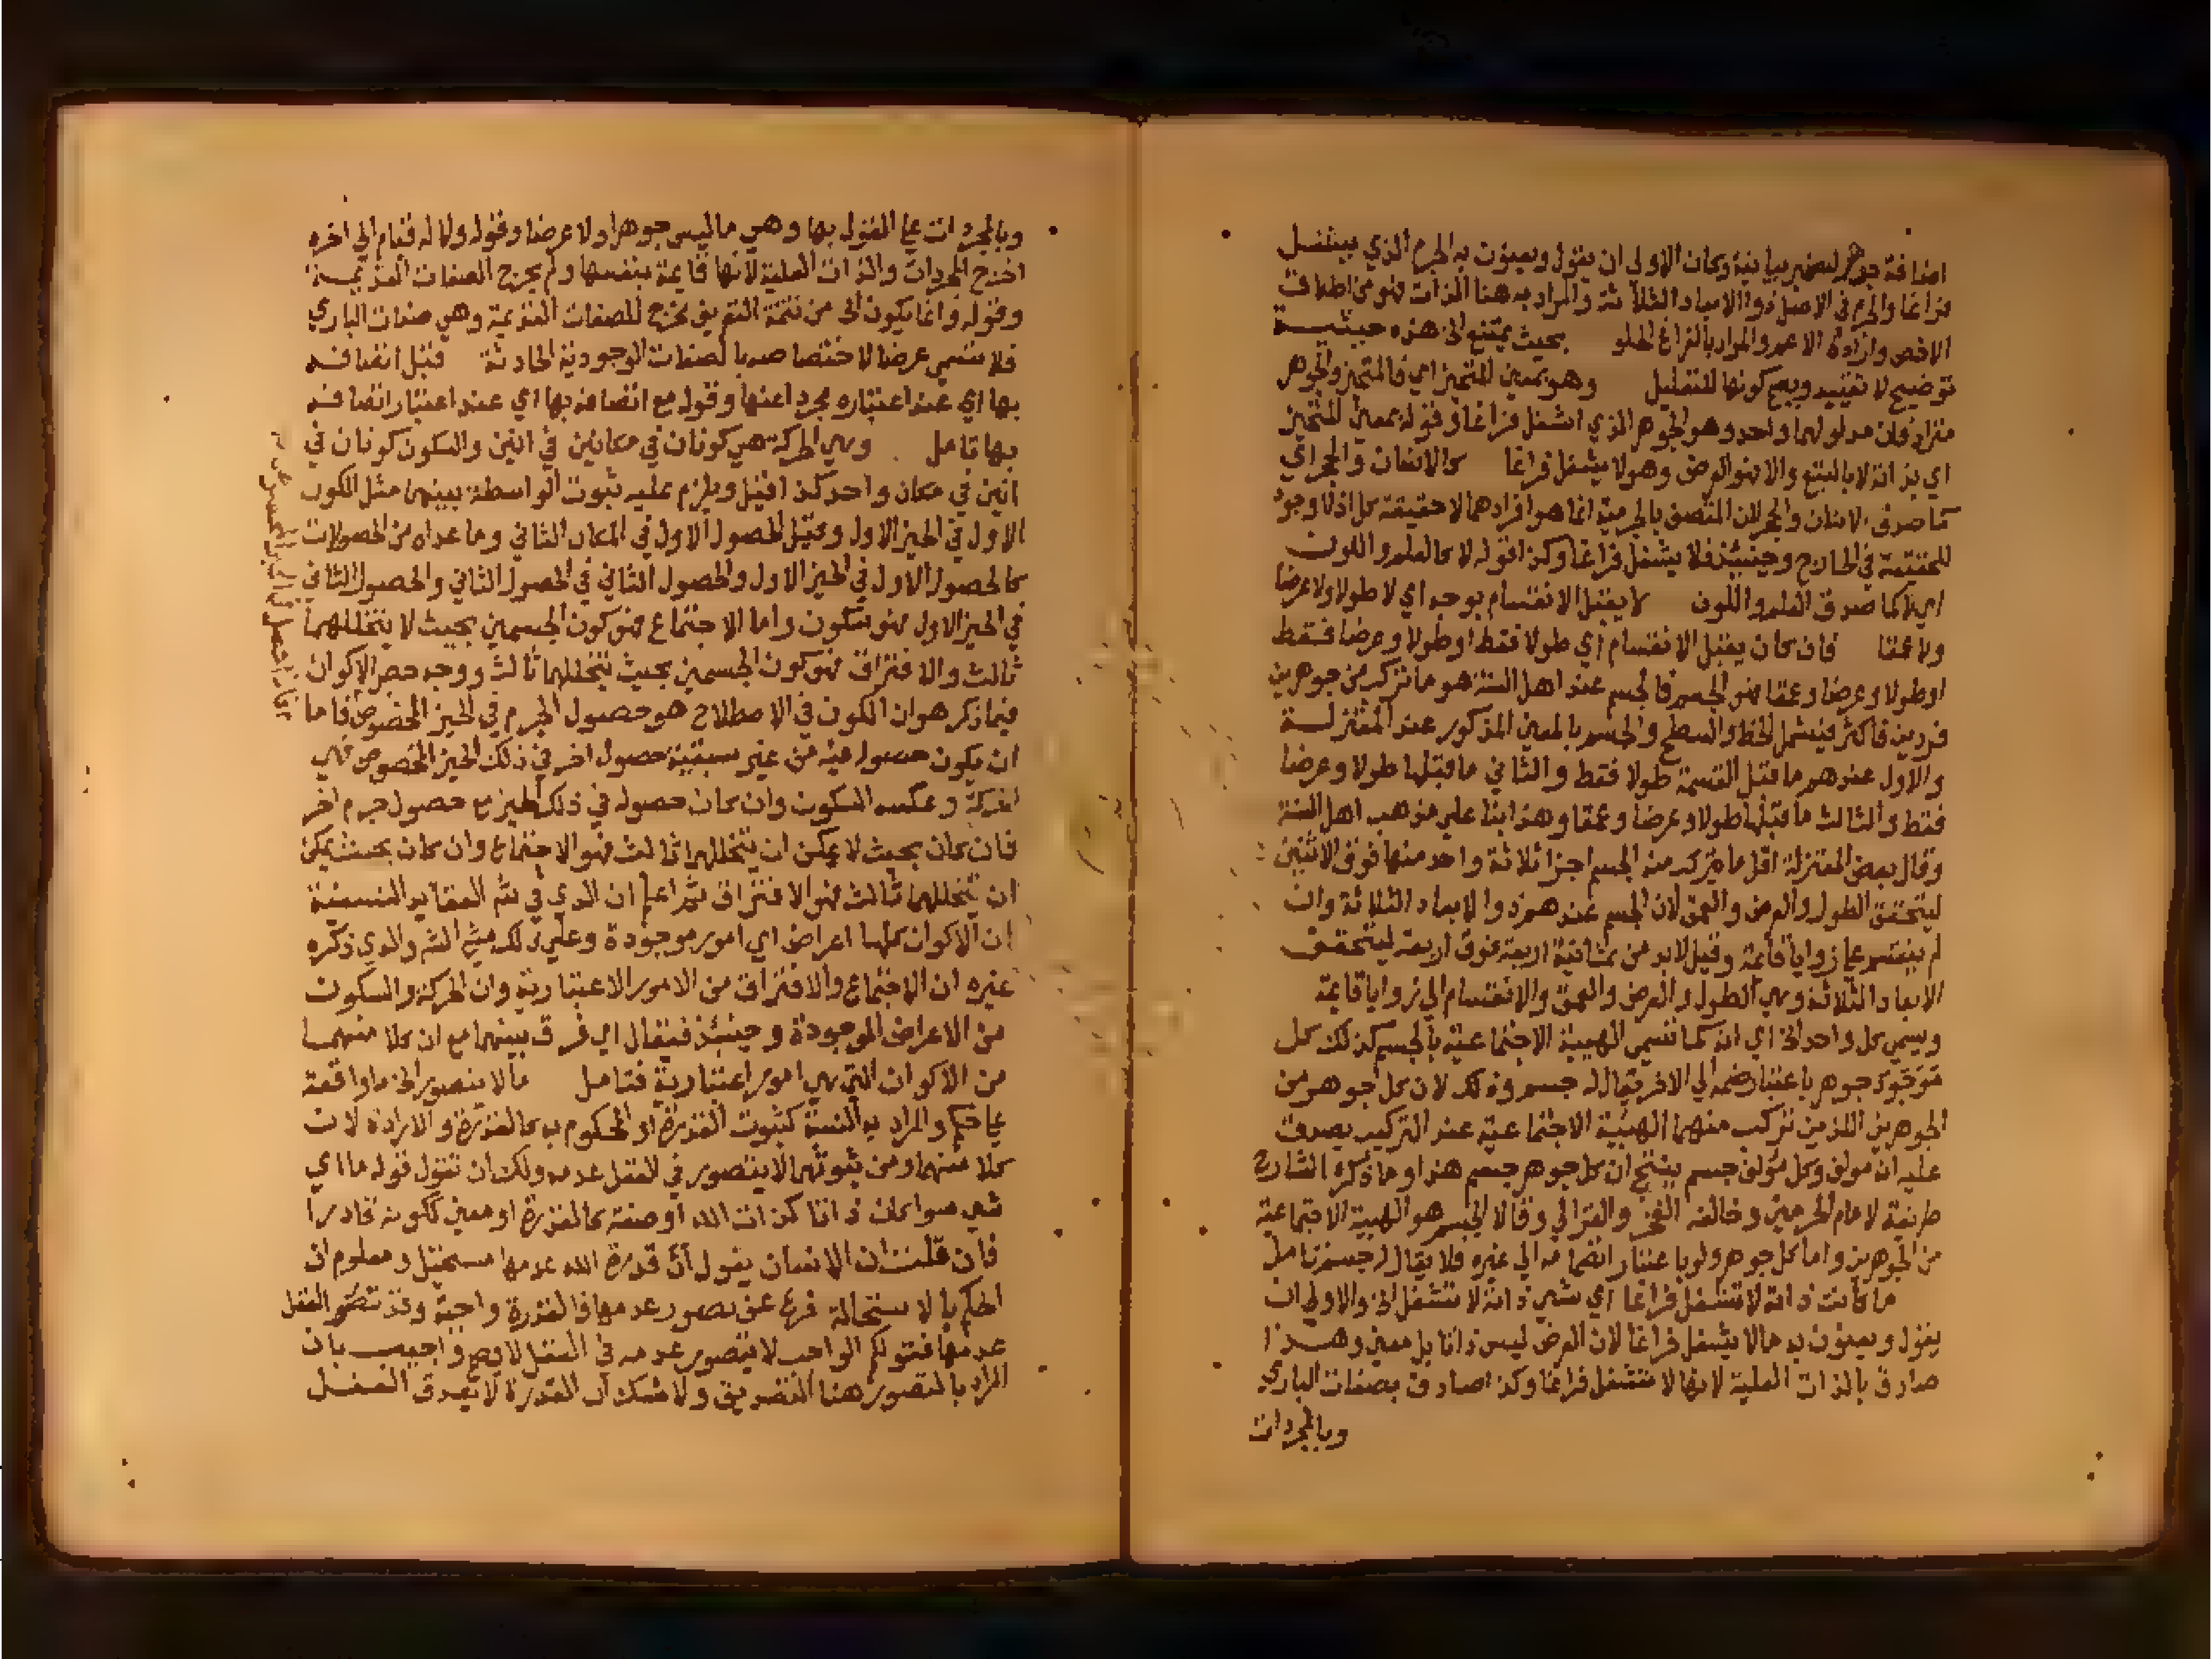 اضافة جوهر لضمير بيانية وكان الاولى ان يقول ويعنون به الجرم الذي يشغل
فراغا والجرم في الاصل ذو الابعاد الثلاثة والمراد به هنا الذات فهو من اطلاق
الاخص وارادة الاعم والمراد بالفراغ الخلو بحيث يمتنع الخ هذه حيثية
توضيح لا تقييد ويصح كونها للتعليل وهو بمعنى المتحيز اي فالمتحيز والجوهر
فان مدلولهما واحد وهو الجوهر الذي اشغل فراغا وقوله بمعنى المتحيز
اي بذاته لا بالتبع والا فهو العرض وهو لا يشغل فراغا كالانسان والحجر اي
كما صدق الانسان والحجر لان المتصف بالجرمية انما هو افرادهما لا حقيقة كل اذ لا وجود
للحقيقة في الخارج وحينئذ فلا يشغل فراغا وكذا قوله لا كالعلم واللون
اي لا كما صدق العلم واللون لا يقبل الانقسام بوجه اي لا طولا ولا عرضا
ولا عمقا فان كان يقبل الانقسام اي طولا فقط او طولا وعرضا فقط
او طولا وعرضا وعمقا فهو الجسم فالجسم عند اهل السنة هو ما تركب من جوهرين
فردين فاكثر فيشمل الخط والسطح والجسم بالمعنى المذكور عند المعتزلة
والاول عندهم ما قبل القسمة طولا فقط والثاني ما قبلها طولا وعرضا
فقط والثالث ما قبلها طولا وعرضا وعمقا وهذا بناء على مذهب اهل السنة
وقال بعض المعتزلة اقل ما يتركب منه الجسم اجزا ثلاثة واحد منها فوق الاثنين
ليتحقق الطول والعرض والعمق لان الجسم عندهم ذو الابعاد الثلاثة وان
لم ينقسم على زوايا قائمة وقيل لابد من ثمانية اربعة فوق اربعة ليتحقق
الابعاد الثلاثة وهي الطول والعرض والعمق والانقسام الى زوايا قايمة
ويسمى كل واحد الخ اي انه كما تسمى الهيية الاجتماعية بالجسم كذلك كل
جوهر باعتبار ضمه الى الاخر يقال له جسم وذلك لان كل جوهر من
الجوهرين اللذين تركب منهما الهيئية الاجتماعية عند التركيب يصدق
عليه انه مولف وكل مؤلف جسم ينتج ان كل جوهر جسم هذا وما ذكره الشارح
طريقة لامام الحرمين وخالفه الفخر والغزالي وقالا الجسم هو الهيية الاجتماعية
من الجوهرين واما كل جوهر ولو باعتبار انضمامه الى غيره فلا يقال له جسم تامل
ما كانت ذاته لا تشغل فراغا اي شيء ذاته لا تشغل الخ والاولى ان
يقول ويعنون به ما لا يشغل فراغا لان العرض ليس ذاتا بل معنى وهذا
صادق بالذات العلية لانها لا تشغل فراغا وكذا صادق بصفات الباري
وبالمجردات
وبالمجردات على القول بها وهي ما ليس جوهرا ولا عرضا وقوله ولا له قيام الى اخره
اخرج المجردات والذات العلية لانها قايمة بنفسها ولم يخرج الصفات القديمة
وقوله وانما يكون الخ من تتمة التعريف مخرج للصفات القديمة وهي صفات الباري
فلا تسمى عرضا لاختصاصه بالصفات الوجودية الحادثة قبل اتصافه
بها اي عند اعتباره مجردا عنها وقوله مع اتصافه بها اي عند اعتبار اتصافه
بها تامل وهي الحركة هي كونان في مكانين في انين والسكون كونان في
انين في مكان واحد كذا قيل ويلزم عليه ثبوت الواسطة بينهما مثل الكون
الاول في الحيز الاول وقيل الحصول الاول في المكان الثاني وما عداه من الحصولات
كالحصول الاول في الحيز الاول والحصول الثاني في الحصول الثاني والحصول الثاني
في الحيز الاول فهو سكون واما الاجتماع فهو كون الجسمين بحيث لا يتخللهما
ثالث والافتراق فهو كون الجسمين بحيث يتخللهما ثالث ووجه حصر الاكوان
فيما ذكر هو ان الكون في الاصطلاح هو حصول الجرم في الحيز المخصوص فاما
ان يكون حصوله فيه من غير سبقية حصول اخر في ذلك الحيز المخصوص فهي
الحركة وعكسه السكون وان كان حصوله في ذلك الحيز مع حصول جرم اخر
فان كان بحيث لا يمكن ان يتخللهما ثالث فهو الاجتماع وان كان بحيث يمكن
ان يتخللهما ثالث فهو الافتراق ثم اعلم ان الذي في شرح العقايد النسفية
ان الاكوان كلها اعراض اي امور موجودة وعلى ذلك مشى الشر والذي ذكره
غيره ان الاجتماع والافتراق من الامور الاعتبارية وان الحركة والسكون
من الاعراض الموجودة وحينئذ فيقال اي فرق بينهما مع ان كلا منهما
من الاكوان التي هي امور اعتبارية فتامل ما لا يتصور الخ ما واقعة
على حكم والمراد به النسبة كثبوت القدرة او المحكوم به كالقدرة والارادة لان
كلا منهما ومن ثبوتهما لا يتصور في العقل عدمه ولك ان تقول قوله ما اي
شيء سواء كان ذاتا كذات الله او صفة كالقدرة او معنى ككونه قادرا
فان قلت ان الانسان يقول ان قدرة الله عدمها مستحيل ومعلوم ان
الحكم بالاستحالة فرع عن تصور عدمها فالقدرة واجبة وقد تصور العقل
عدمها فقولكم الواجب لا يتصور عدمه في العقل لا يصح واجيب بان
المراد بالتصور هنا التصديق ولا شك ان القدرة لا يصدق العقل